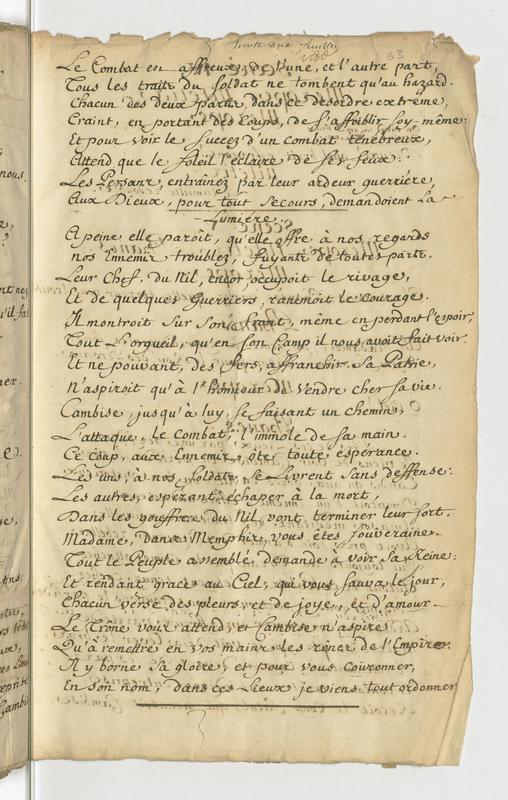 trente deux feuillets
63
Le Combat est affreux. de l'une, et l'autre part,
Tous les traits du Soldat ne tombent qu'au hazard.
Chacun des deux partis, dans ce desordre extreme,
Craint, en portant des Coups, de s'affoiblir soy-même:
Et pour voir le succez d'un combat tenebreux,
Attend que le soleil l'éclaire de ses feux.
Les Persans, entrainez par leur ardeur guerriere,
Aux Dieux, pour tout secours, demandoient La
Lumiere.
A peine elle paroît, qu'elle offre à nos regards
nos Ennemis troublez, fuyants de toutes parts.
Leur Chef, du Nil, encor, occupoit le rivage,
Et de quelques Guerriers, ranimoit le Courage.
Il montroit sur son front, même en perdant l'espoir,
Tout l'orgueil, qu'en son Camp il nous avoit fait voir.
Et ne pouvant, des fers, affranchir sa Patrie,
N'aspiroit qu'à l'honneur de Vendre cher sa vie.
Cambise, jusqu'à luy, se faisant un chemin,
L'attaque, le Combat, l'immole de sa main.
Ce coup, aux Ennemis, ôte toute espérance.
Les uns, à nos soldats, se Livrent sans deffense:
Les autres, espérant échaper à la mort,
Dans les gouffres du Nil, vont terminer leur sort.
Madame, dans Memphis, vous êtes souveraine.
Tout le Peuple assemblé, demande à voir sa Reine:
Et rendant grace au Ciel, qui vous sauva le jour,
Chacun verse des pleurs, et de joye, et d'amour.
Le Trône vous attend, et Cambise n'aspire
Qu'à remettre en vos mains les rênes de l'Empire.
Il y borne sa gloire, et pour vous Couronner,
En son nom, dans ces Lieux je viens tout ordonner